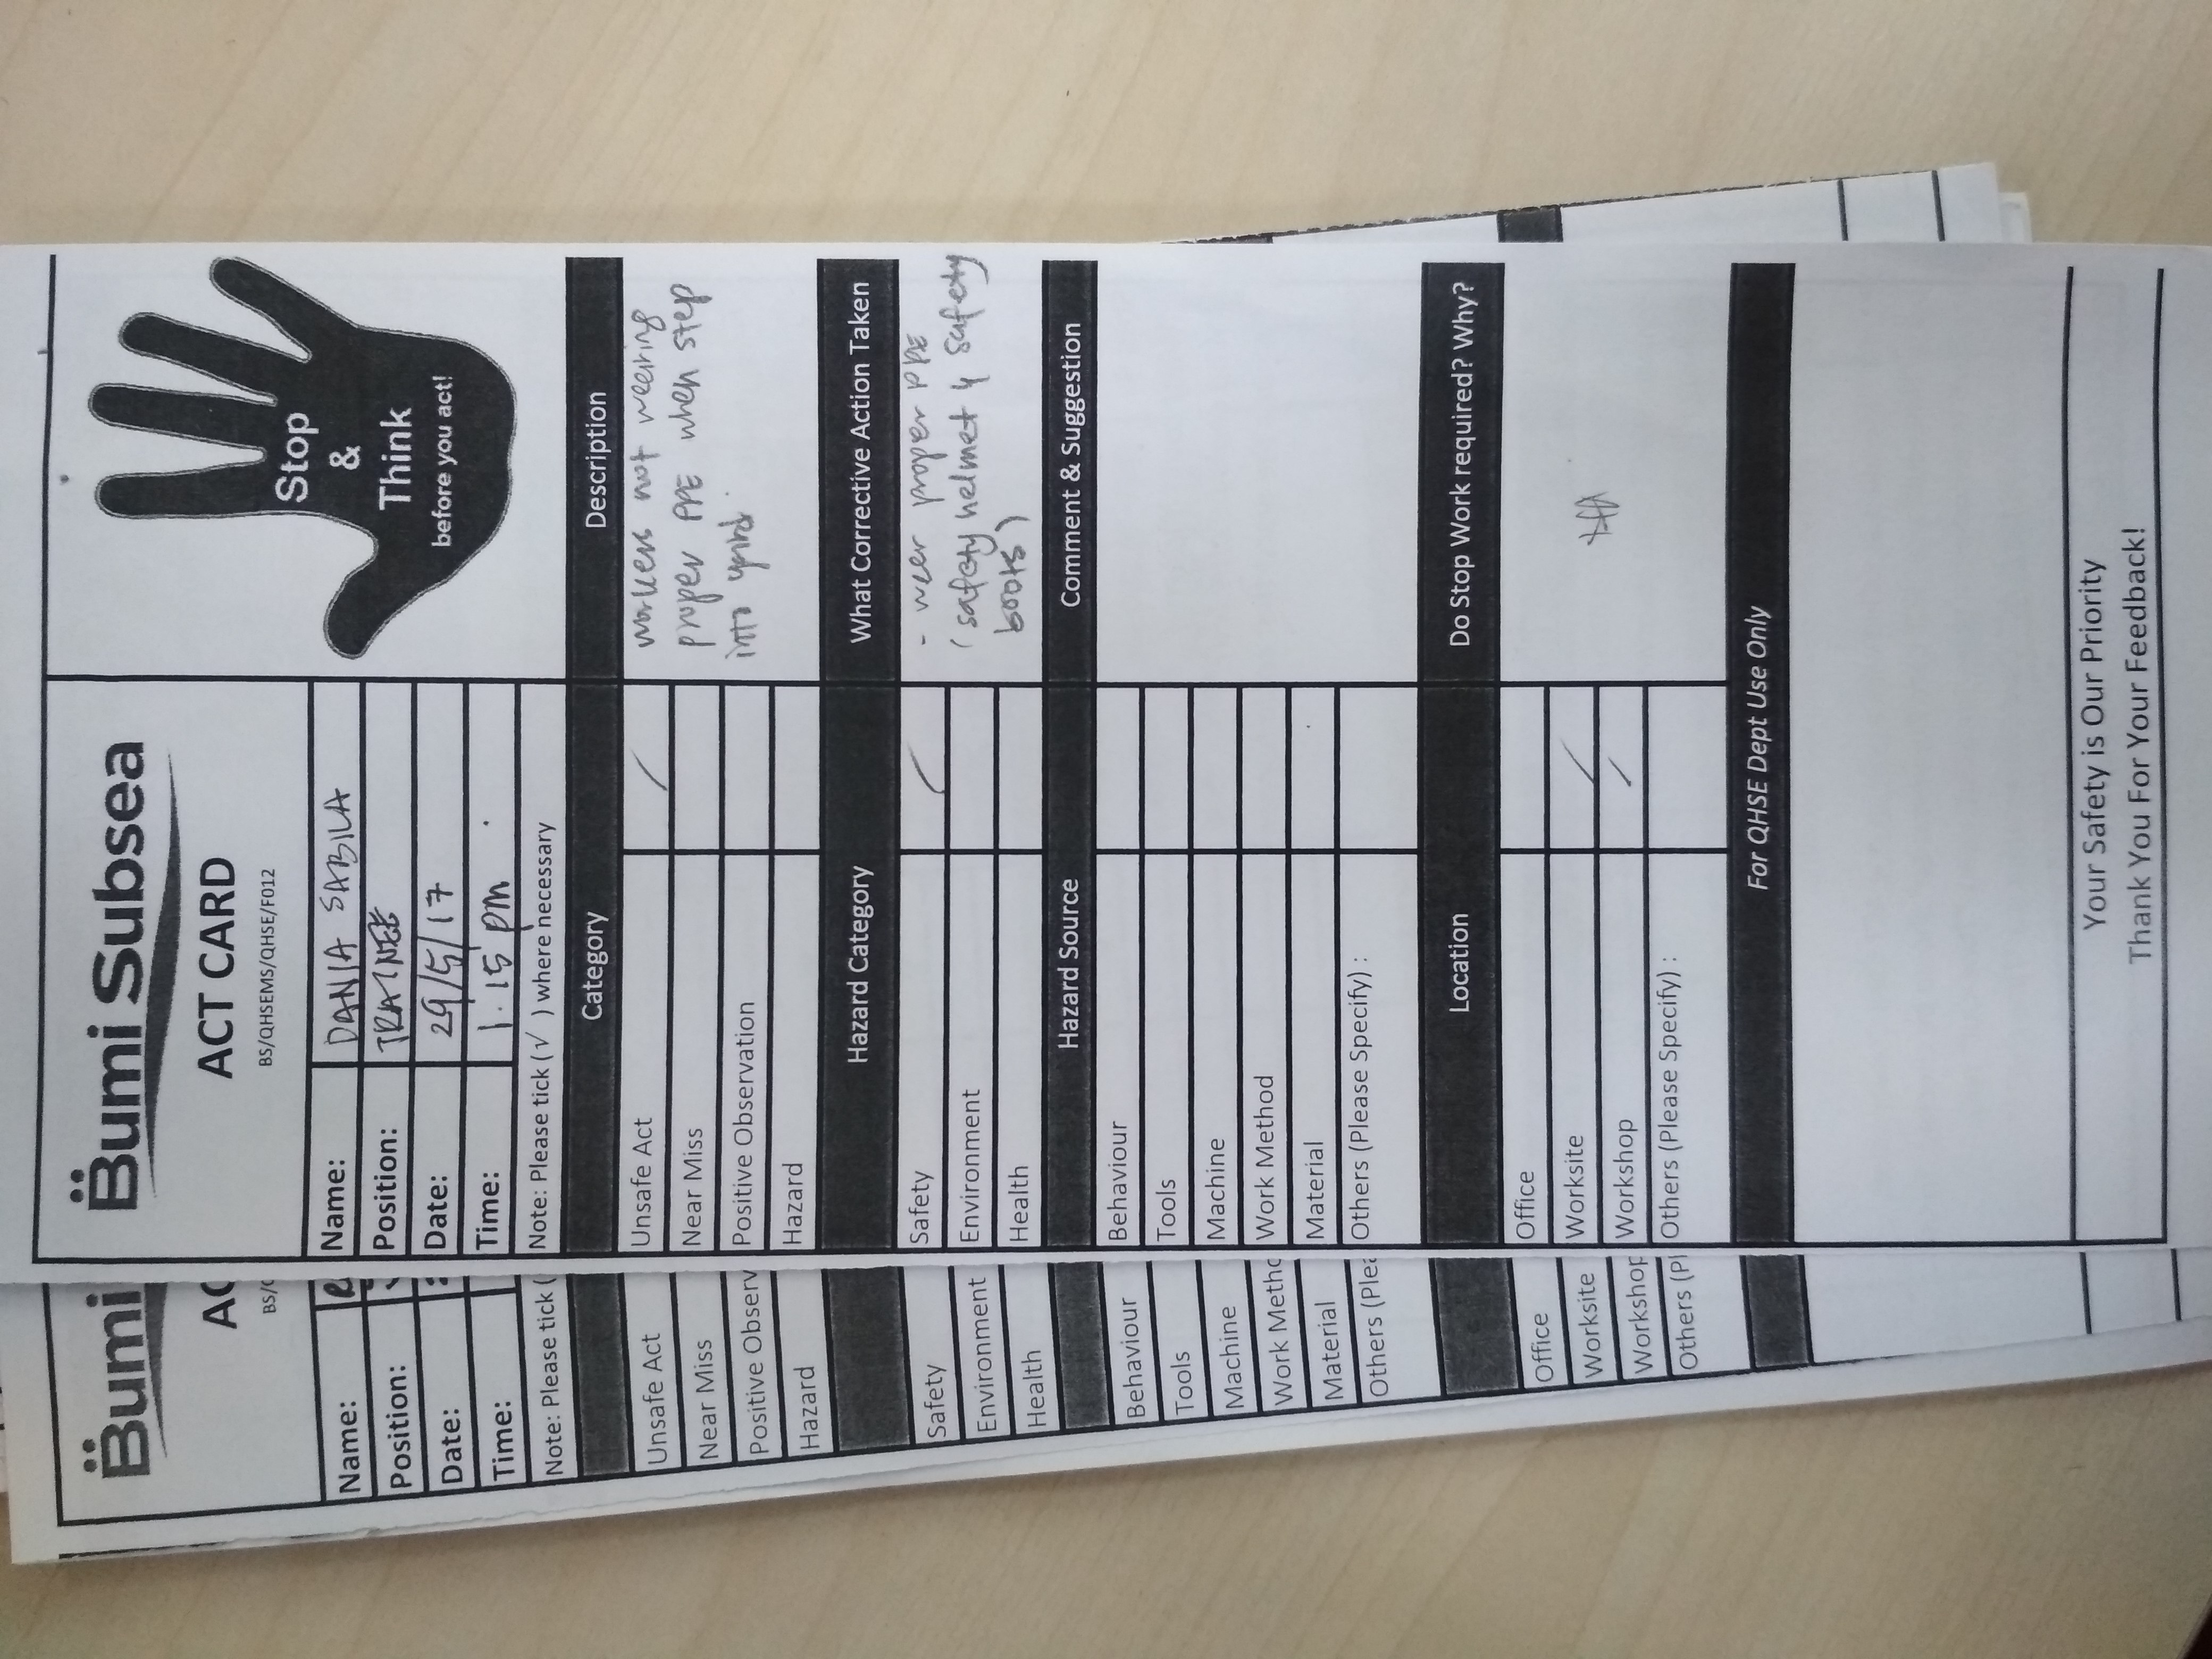 Bumi Subsea
ACT CARD
BS/QHSEMS/QHSE/F012
Stop
&
Think
before you act!
Name: DANIA SABILA
Position: TRAINEE
Date: 29/5/17
Time: 1.15 pm.
Note: Please tick (√ ) where necessary
Category Description
Unsafe Act
Near Miss
Positive Observation
Hazard
workers not weering
proper PPE when step
into yard.
Hazard Category What Corrective Action Taken
Safety
Environment
Health
- weer proper PPE
(safety helmet & safety
boots)
Hazard Source Comment & Suggestion
Behaviour
Tools
Machine
Work Method
Material
Others (Please Specify) :
Location Do Stop Work required? Why?
Office
Worksite
Workshop
Others (Please Specify) :
For QHSE Dept Use Only
Your Safety is Our Priority
Thank You For Your Feedback!
Bumi
AC
BS/
Name:
Position:
Date:
Time:
Note: Please tick (
Unsafe Act
Near Miss
Positive Observ
Hazard
Safety
Environment
Health
Behaviour
Tools
Machine
Work Metho
Material
Others (Plea
Office
Worksite
Workshop
Others (Pl